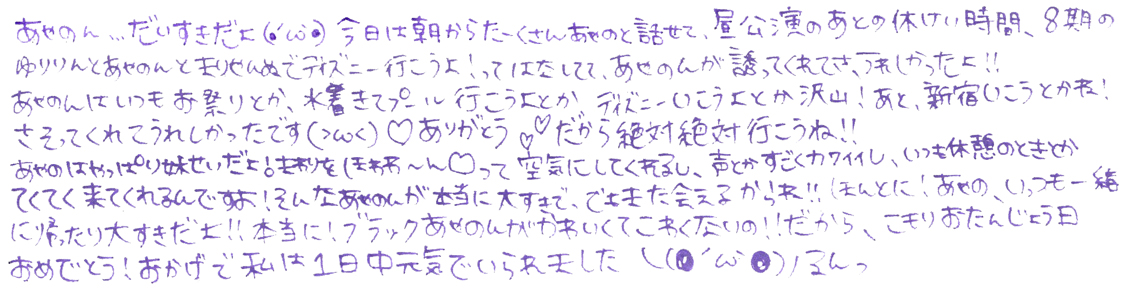 あやのん…だいすきだよ(・´ω`・) 今日は朝からたーくさんあやのと話せて、昼公演のあとの休けい時間、8期の
ゆりりんとあやのんとまりせんぬでディズニー行こうよ!ってはなしてて、あやのんが誘ってくれてさ、うれしかったよ!!
あやのんはいつもお祭りとか、水着きてプール行こうよとか、ディズニーいこうよとか沢山!あと、新宿いこうとかね!
さそってくれてうれしかったです(>ω<)♡ありがとう♡♡だから絶対絶対行こうね!!
あやのはやっぱり妹せいだよ!まわりをほわわ〜ん♡って空気にしてくれるし、声とかすごくカワイイし、いつも休憩のときとか
てくてく来てくれるんですよ!そんなあやのんが本当に大すきで、でもまた会えるからね!!ほんとに!あやの、いっつも一緒
に帰ったり大すきだよ!!本当に!ブラックあやのんがかわいくてこわくないの!!だから、こもりおたんじょう日
おめでとう!おかげで私は1日中元気でいられました\(●´ω`●)/るんっ